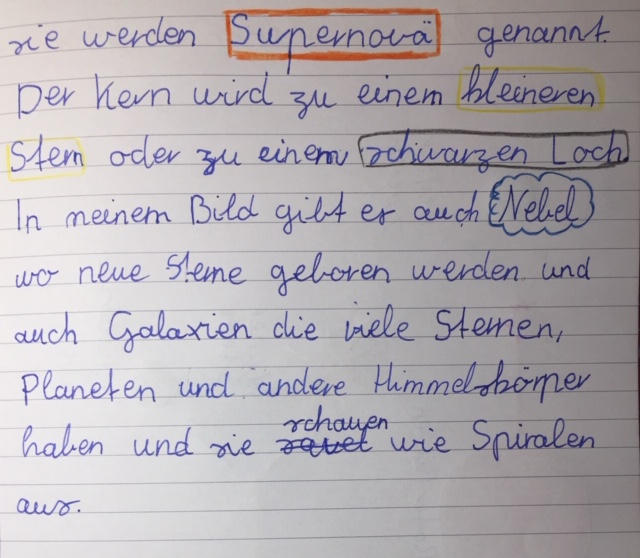 sie werden Supernovä genannt.
Der Kern wird zu einem kleineren
Stern oder zu einem schwarzen Loch
In meinem Bild gibt es auch Nebel
wo neue Sterne geboren werden und
auch Galaxien die viele Sternen,
Planeten und andere Himmelskörper
haben und sie schauen wie Spiralen
aus.